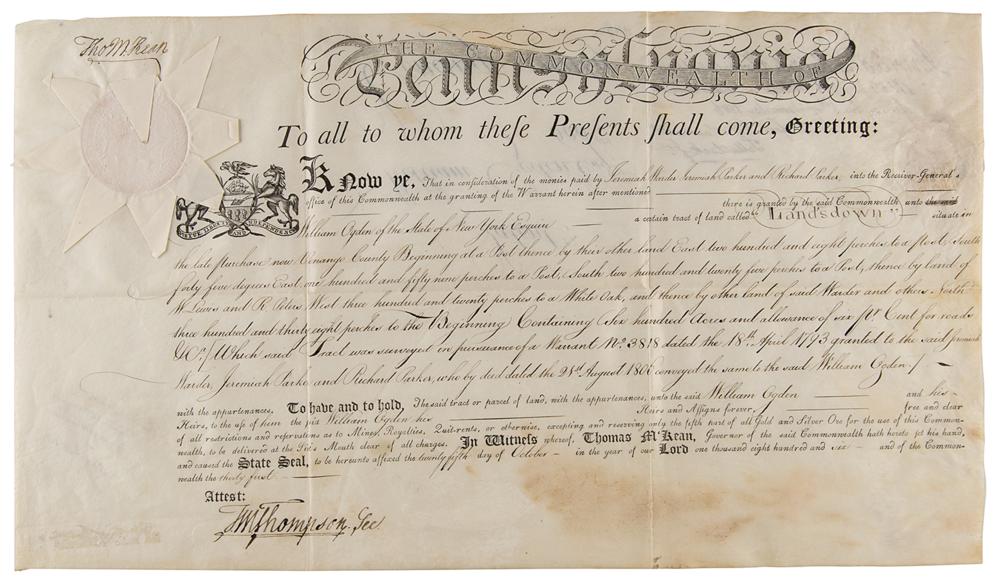 Tho M:Kean
THE COMMONWEALTH OF
Pennsylvania
To all to whom theſe Preſents ſhall come, Greeting:
KNOW YE, That in conſideration of the monies paid by Jeremiah Warder Jeremiah Parker and Richard Parker, into the Receiver-General's
office of this Commonwealth at the granting of the Warrant herein after mentioned there is granted by the ſaid Commonwealth unto the said
William Ogden of the State of New York Esquire a certain tract of land called "Landsdown" ſituate in
VIRTUE LIBERTY AND INDEPENDENCE
the late Purchase now Venango County Beginning at a Post thence by their other land East two hundred and eight perches to a post, South
forty five degrees East, one hundred and fifty nine perches to a Post, South two hundred and twenty five perches to a Post, thence by land of
W. Lewis and R. Peters, West three hundred and twenty perches to a White Oak, and thence by other land of said Warder and others North
three hundred and thirty eight perches to the Beginning Containing Six hundred Acres and allowance of six pr Cent for roads
&c. Which said Tract was surveyed in pursuance of a Warrant No. 3818 dated the 18th April 1793 granted to the said Jeremiah
Warder, Jeremiah Parker and Richard Parker, who by deed dated the 21st August 1806 conveyed the same to the said William Ogden.
with the appurtenances. To have and to hold, The ſaid tract or parcel of land, with the appurtenances, unto the ſaid William Ogden and his
Heirs, to the uſe of him the ſaid William Ogden his Heirs and Aſsigns forever, free and clear
of all reſtrictions and reſervations as to Mines, Royalties, Quit-rents, or otherwiſe, excepting and reſerving only the fifth part of all Gold and Silver Ore for the uſe of this Common-
wealth, to be delivered at the Pit's Mouth clear of all charges. In Witneſs whereof, Thomas M'Kean, Governor of the ſaid Commonwealth hath hereto ſet his hand,
and cauſed the State Seal, to be hereunto affixed the twenty fifth day of October in the year of our Lord one thouſand eight hundred and six and of the Common-
wealth the thirty first
Attest:
TMThompson Sec